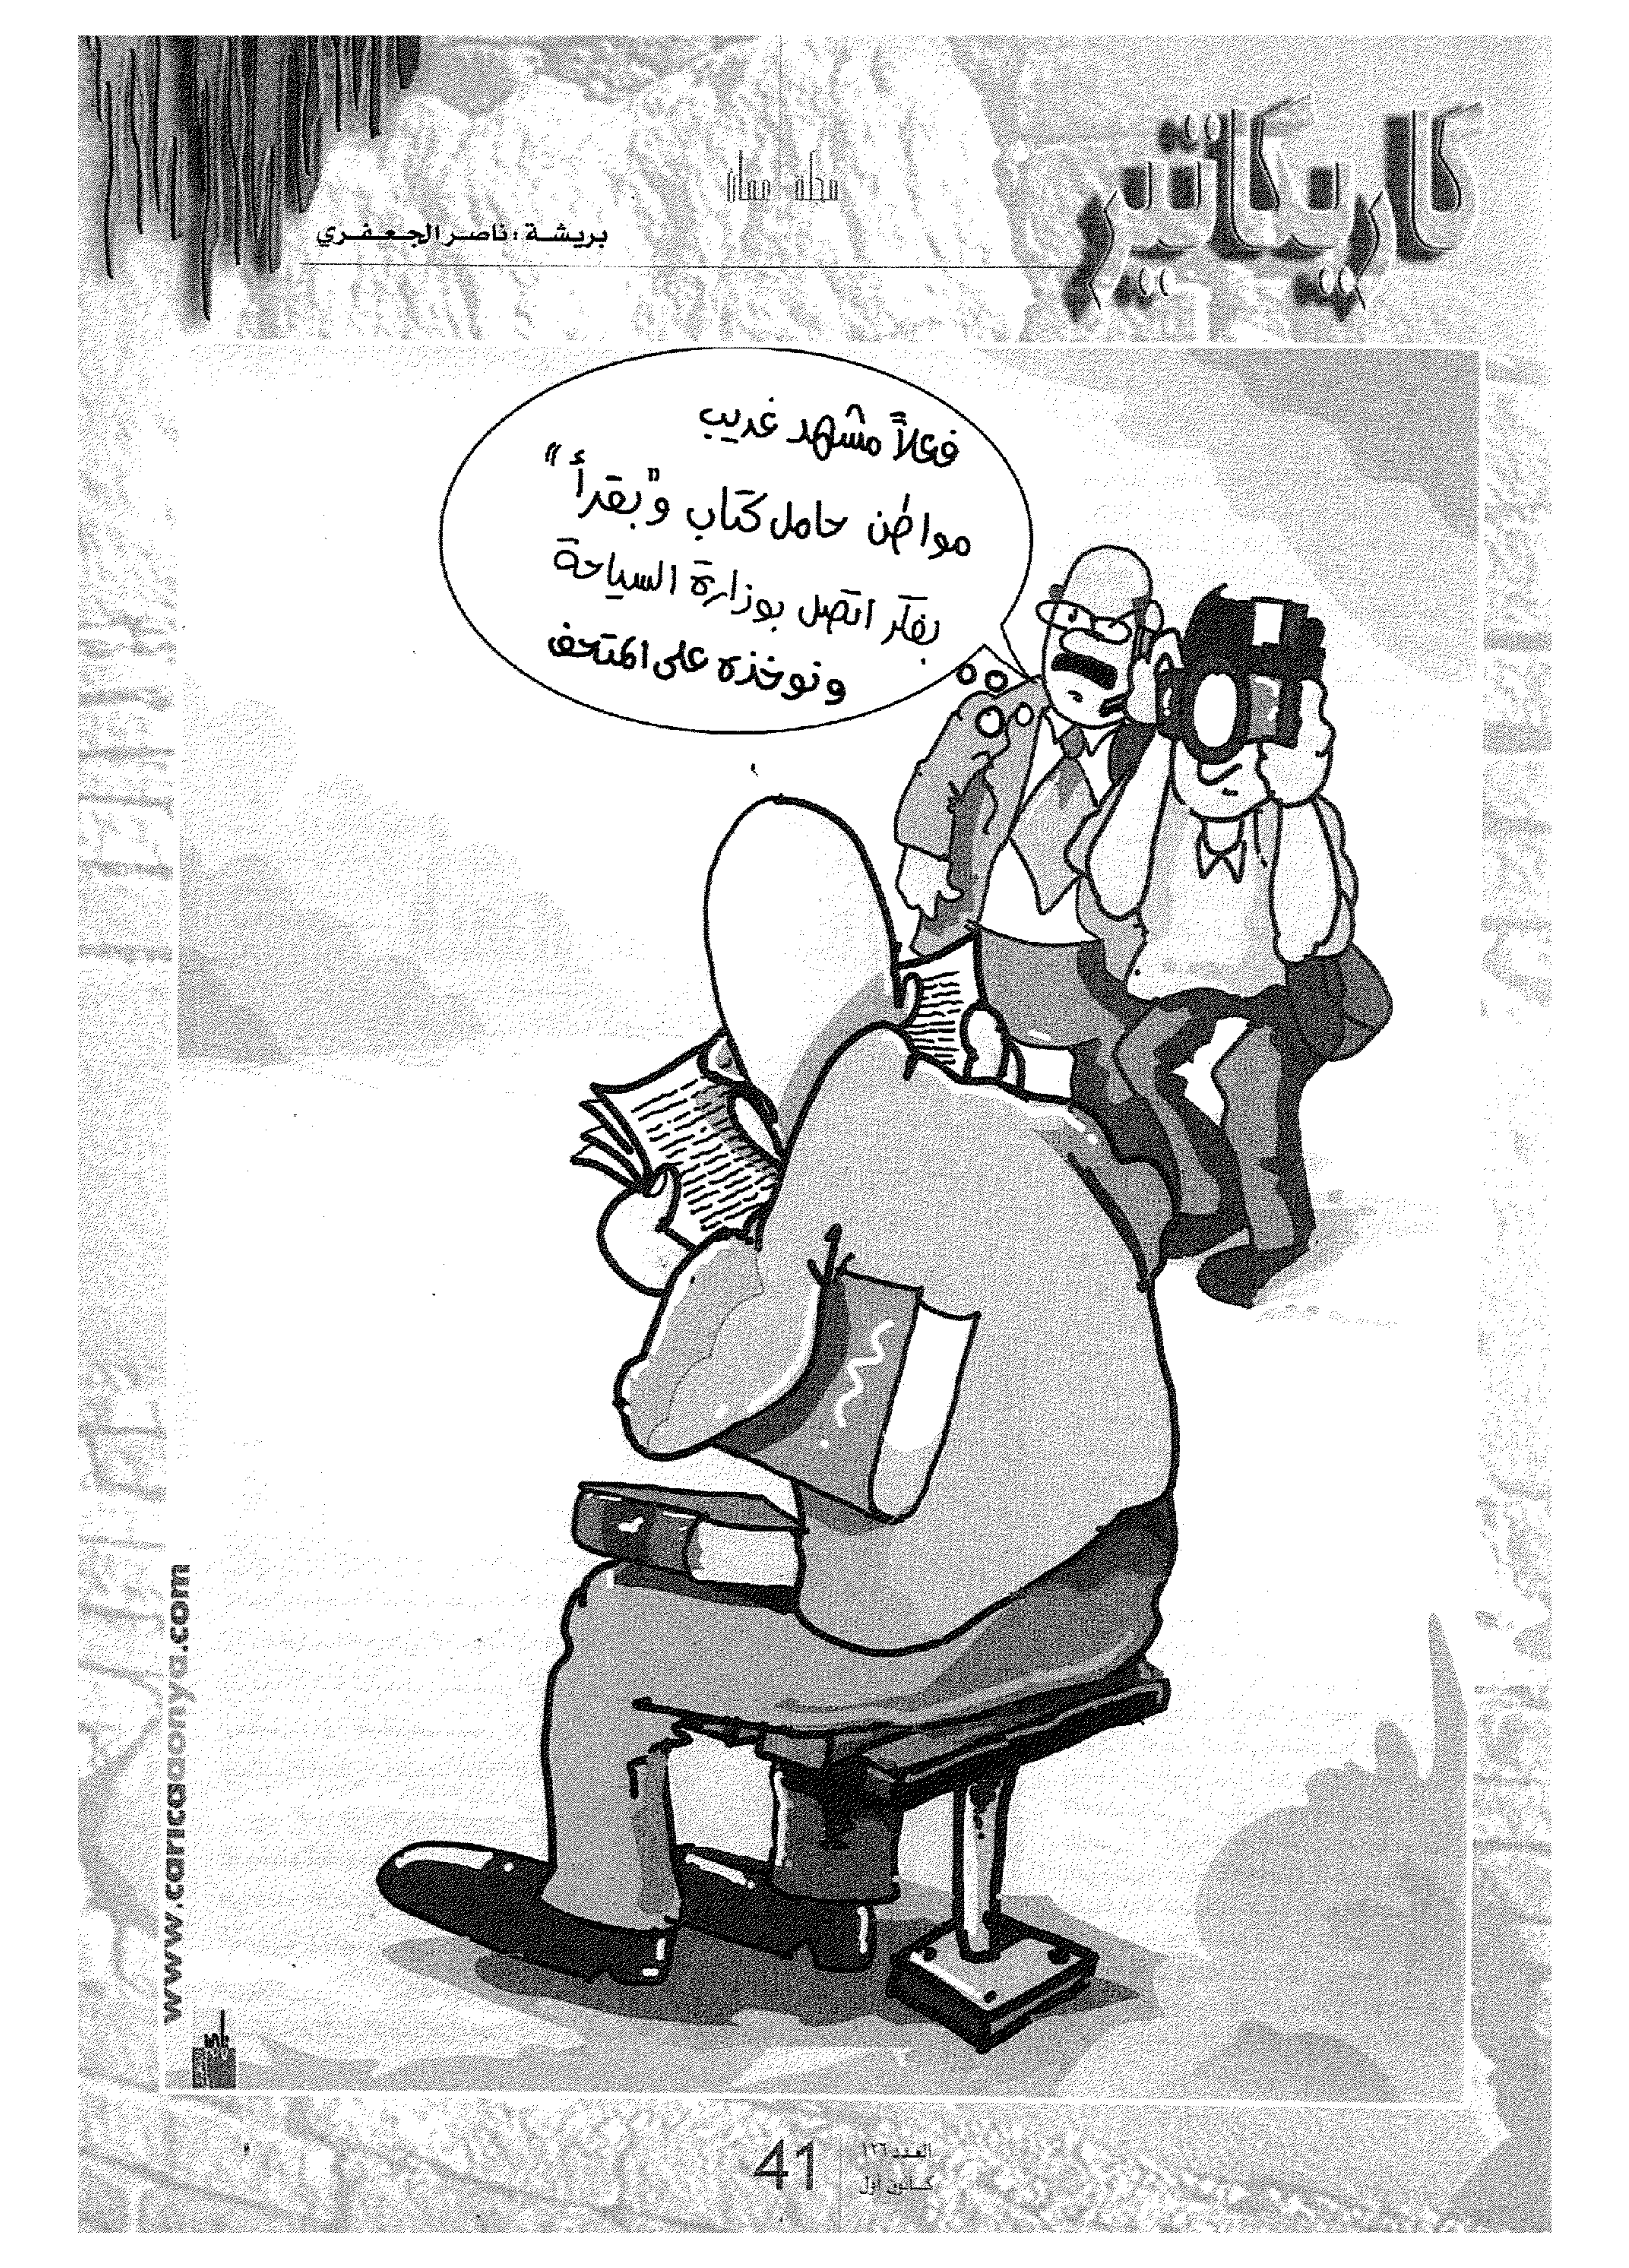 كاريكاتير
مجلة عمان
بريشة : ناصر الجعفري
فعلاً مشهد غريب
مواطن حامل كتاب و"بقرأ"
بفكر اتصل بوزارة السياحة
ونوخذه على المتحف
www.caricadonya.com
41
العدد ١٢٦
كانون اول